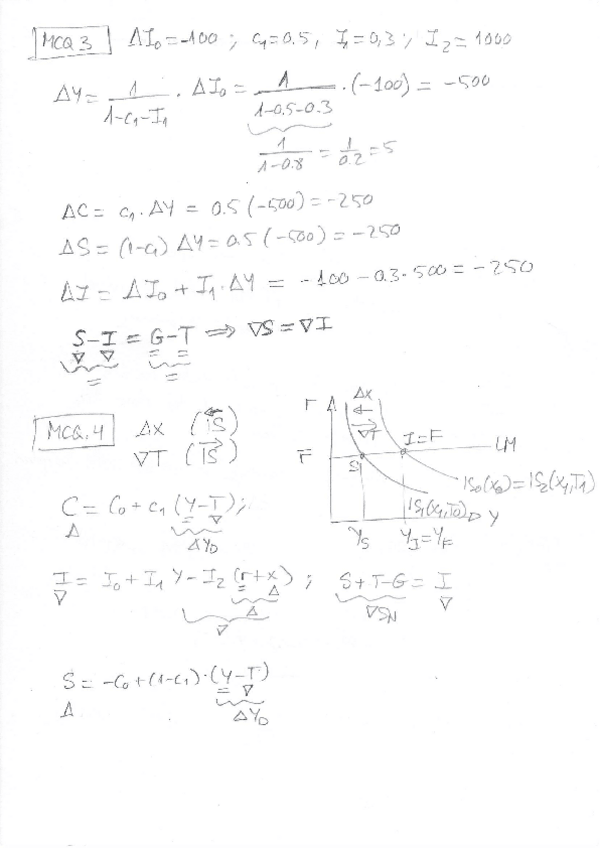 MCQ 3 ΔI₀=-100 ; c₁=0.5, I₁=0,3 ; I₂=1000
ΔY = 1/(1-c₁-I₁) · ΔI₀ = 1/(1-0.5-0.3) · (-100) = -500
1/(1-0.8) = 1/0.2 = 5
ΔC = c₁·ΔY = 0.5(-500) = -250
ΔS = (1-c₁) ΔY = 0.5(-500) = -250
ΔI = ΔI₀ + I₁·ΔY = -100 - 0.3·500 = -250
S-I = G-T ⇒ ∇S=∇I
∇ ∇ = =
= =
MCQ.4 Δx (←IS)
∇T (→IS)
r Δx
←
→
∇T I=F
r̄ S LM
IS₀(x₀)=IS₂(x₁,T₁)
IS₁(x₁,T₀) Y
Y_S Y_I=Y_F
C = C₀ + c₁ (Y-T);
Δ = ∇
ΔY_D
I = I₀+I₁ Y-I₂ (r+x) ; S+T-G = I
∇ = Δ ∇SN ∇
Δ
∇
S = -C₀+(1-c₁)·(Y-T)
Δ = ∇
ΔY_D